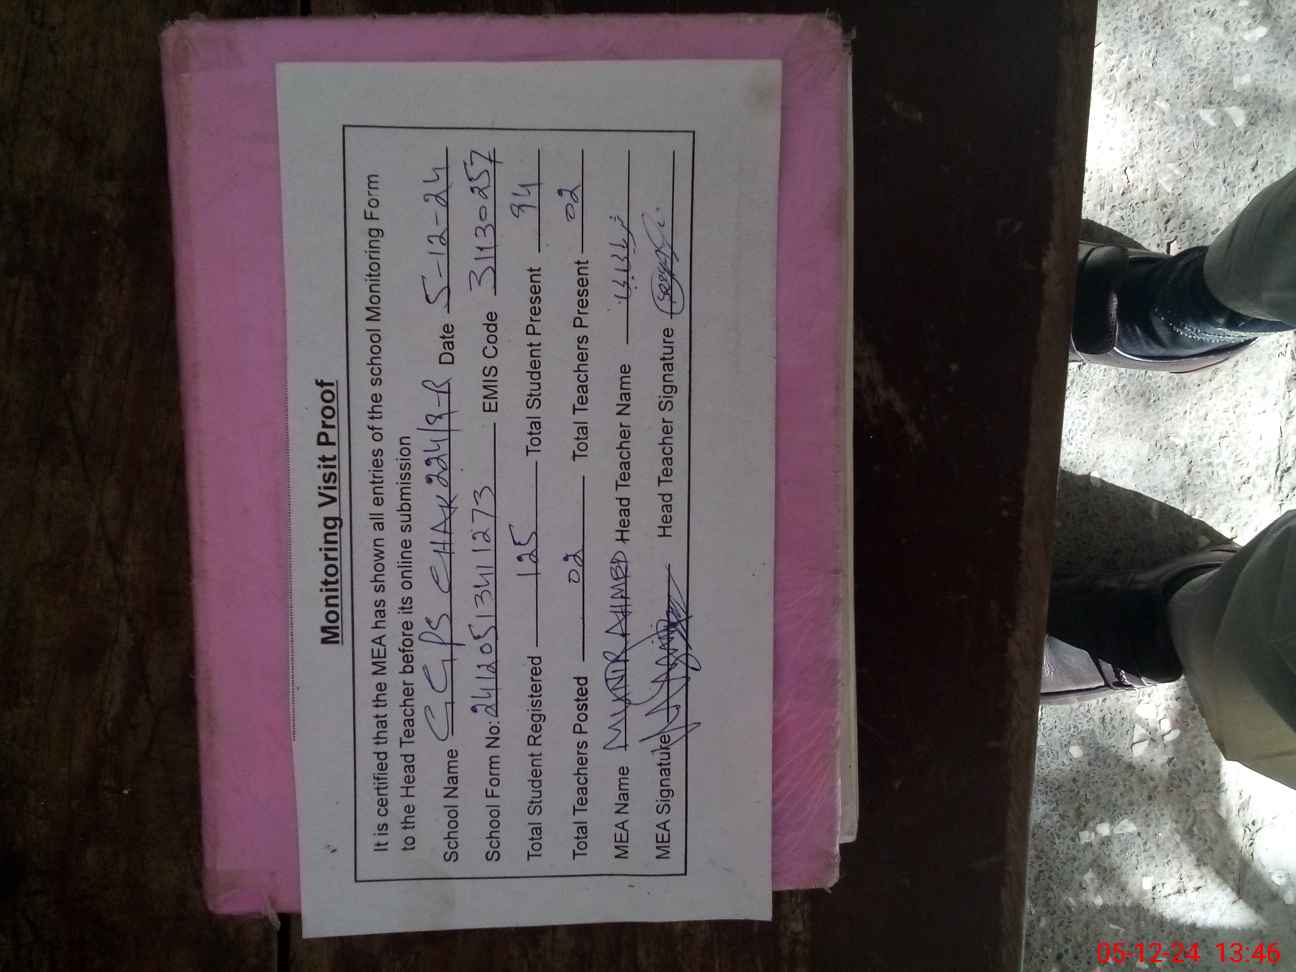 Monitoring Visit Proof
It is certified that the MEA has shown all entries of the school Monitoring Form
to the Head Teacher before its online submission
School Name GGPS CHAK 224/9-R Date 5-12-24
School Form No: 24120513411273 EMIS Code 31130257
Total Student Registered 125 Total Student Present 94
Total Teachers Posted 02 Total Teachers Present 02
MEA Name AHMED Head Teacher Name
MEA Signature Head Teacher Signature
05-12-24 13:46